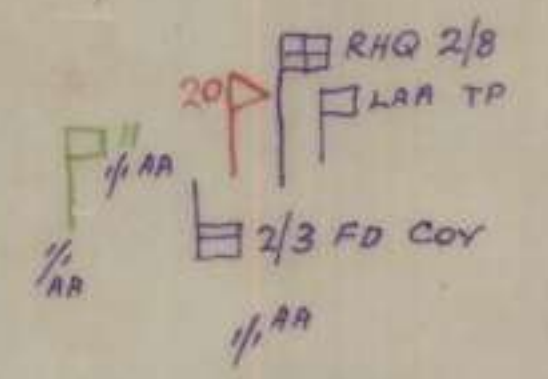 RHQ 2/8
20
LAA TP
11
1/1 AA
2/3 FD COY
1/1
AA
1/1 AA